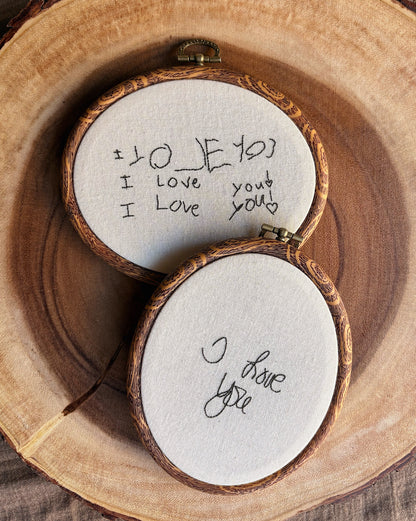 I LOVE YOU
I Love you!
I Love you!
I Love
You